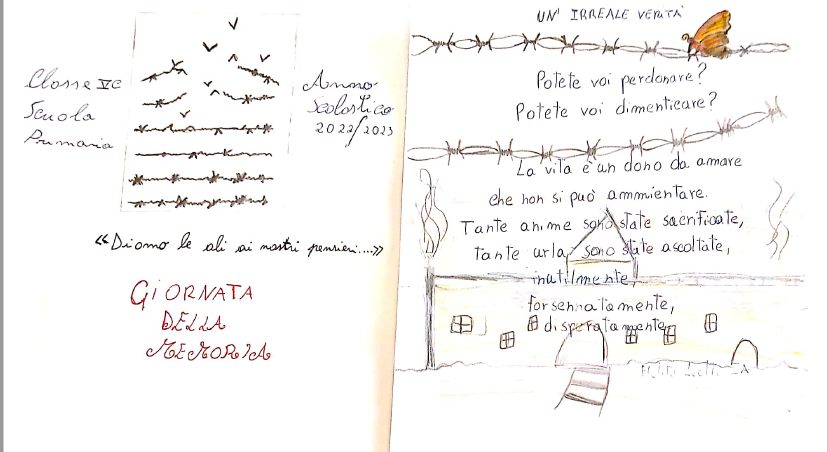 Classe VC
Scuola
Primaria
Anno
Scolastico
2022/2023
«Diamo le ali ai nostri pensieri....»
GIORNATA
DELLA
MEMORIA
UN' IRREALE VERITA'
Potete voi perdonare?
Potete voi dimenticare?
La vita è un dono da amare
che non si può ammientare.
Tante anime sono state sacrificate,
tante urla sono state ascoltate,
inutilmente,
forsennatamente,
disperatamente,